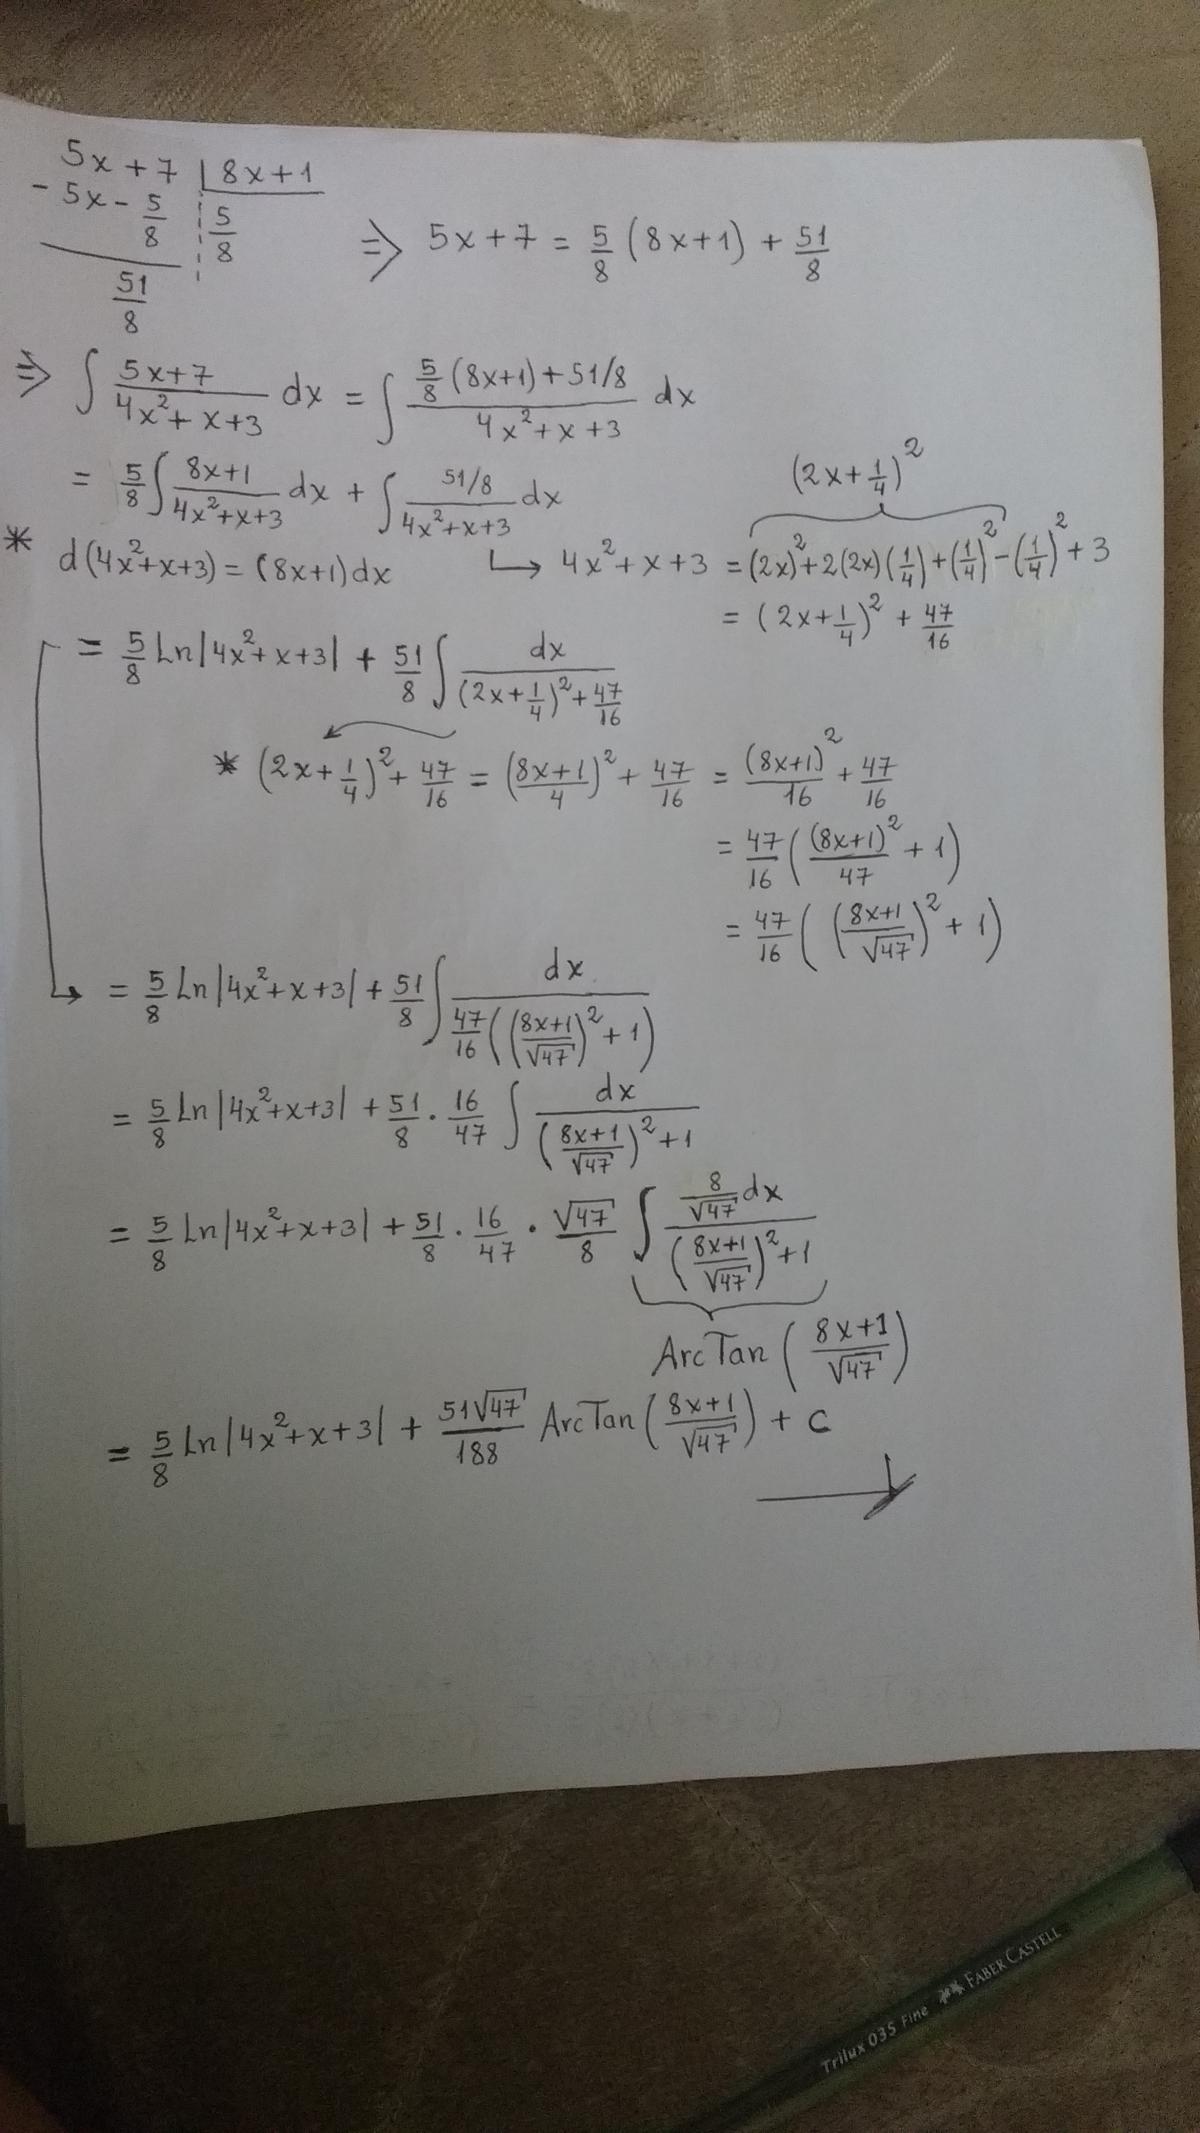 5x + 7 | 8x+1
- 5x - 5/8 | 5/8
51/8
⇒ 5x+7 = 5/8 (8x+1) + 51/8
⇒ ∫ (5x+7)/(4x²+x+3) dx = ∫ (5/8 (8x+1) + 51/8)/(4x²+x+3) dx
= 5/8 ∫ (8x+1)/(4x²+x+3) dx + ∫ (51/8)/(4x²+x+3) dx
(2x+1/4)²
* d(4x²+x+3) = (8x+1)dx
↳ 4x²+x+3 = (2x)²+2(2x)(1/4)+(1/4)²-(1/4)²+3
= (2x+1/4)² + 47/16
= 5/8 Ln|4x²+x+3| + 51/8 ∫ dx/((2x+1/4)²+47/16)
* (2x+1/4)²+47/16 = ((8x+1)/4)² + 47/16 = (8x+1)²/16 + 47/16
= 47/16 ((8x+1)²/47 + 1)
= 47/16 (((8x+1)/√47)² + 1)
= 5/8 Ln|4x²+x+3| + 51/8 ∫ dx/(47/16 (((8x+1)/√47)² + 1))
= 5/8 Ln|4x²+x+3| + 51/8 · 16/47 ∫ dx/(((8x+1)/√47)²+1)
= 5/8 Ln|4x²+x+3| + 51/8 · 16/47 · √47/8 ∫ (8/√47 dx)/(((8x+1)/√47)²+1)
ArcTan ((8x+1)/√47)
= 5/8 Ln|4x²+x+3| + 51√47/188 ArcTan((8x+1)/√47) + C
Trilux 035 Fine FABER CASTELL